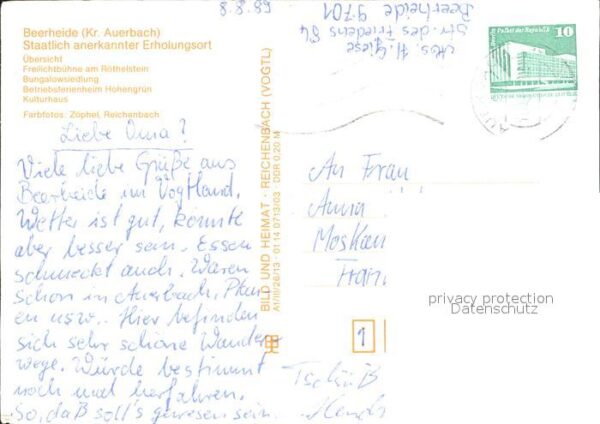 Beerheide (Kr. Auerbach)
Staatlich anerkannter Erholungsort
Übersicht
Freilichtbühne am Röthelstein
Bungalowsiedlung
Betriebsferienheim Hohengrün
Kulturhaus
Farbfotos: Zöphel, Reichenbach
Liebe Oma!
Viele liebe Grüße aus
Beerheide im Vogtland.
Wetter ist gut, könnte
aber besser sein. Essen
schmeckt auch. Waren
schon in Auerbach, Plau-
en usw. Hier befinden
sich sehr schöne Wander-
wege. Würde bestimmt
noch mal herfahren.
So, daß soll's gewesen sein.
Tschüß
BILD UND HEIMAT · REICHENBACH (VOGTL)
A1/III/26/13 · 01 14 0713/03 · DDR 0,20 M
8.8.89
Abs. H. Giese
Str. des Friedens 84
Beerheide
9701
10
An Frau
Anna
privacy protection
Datenschutz
1